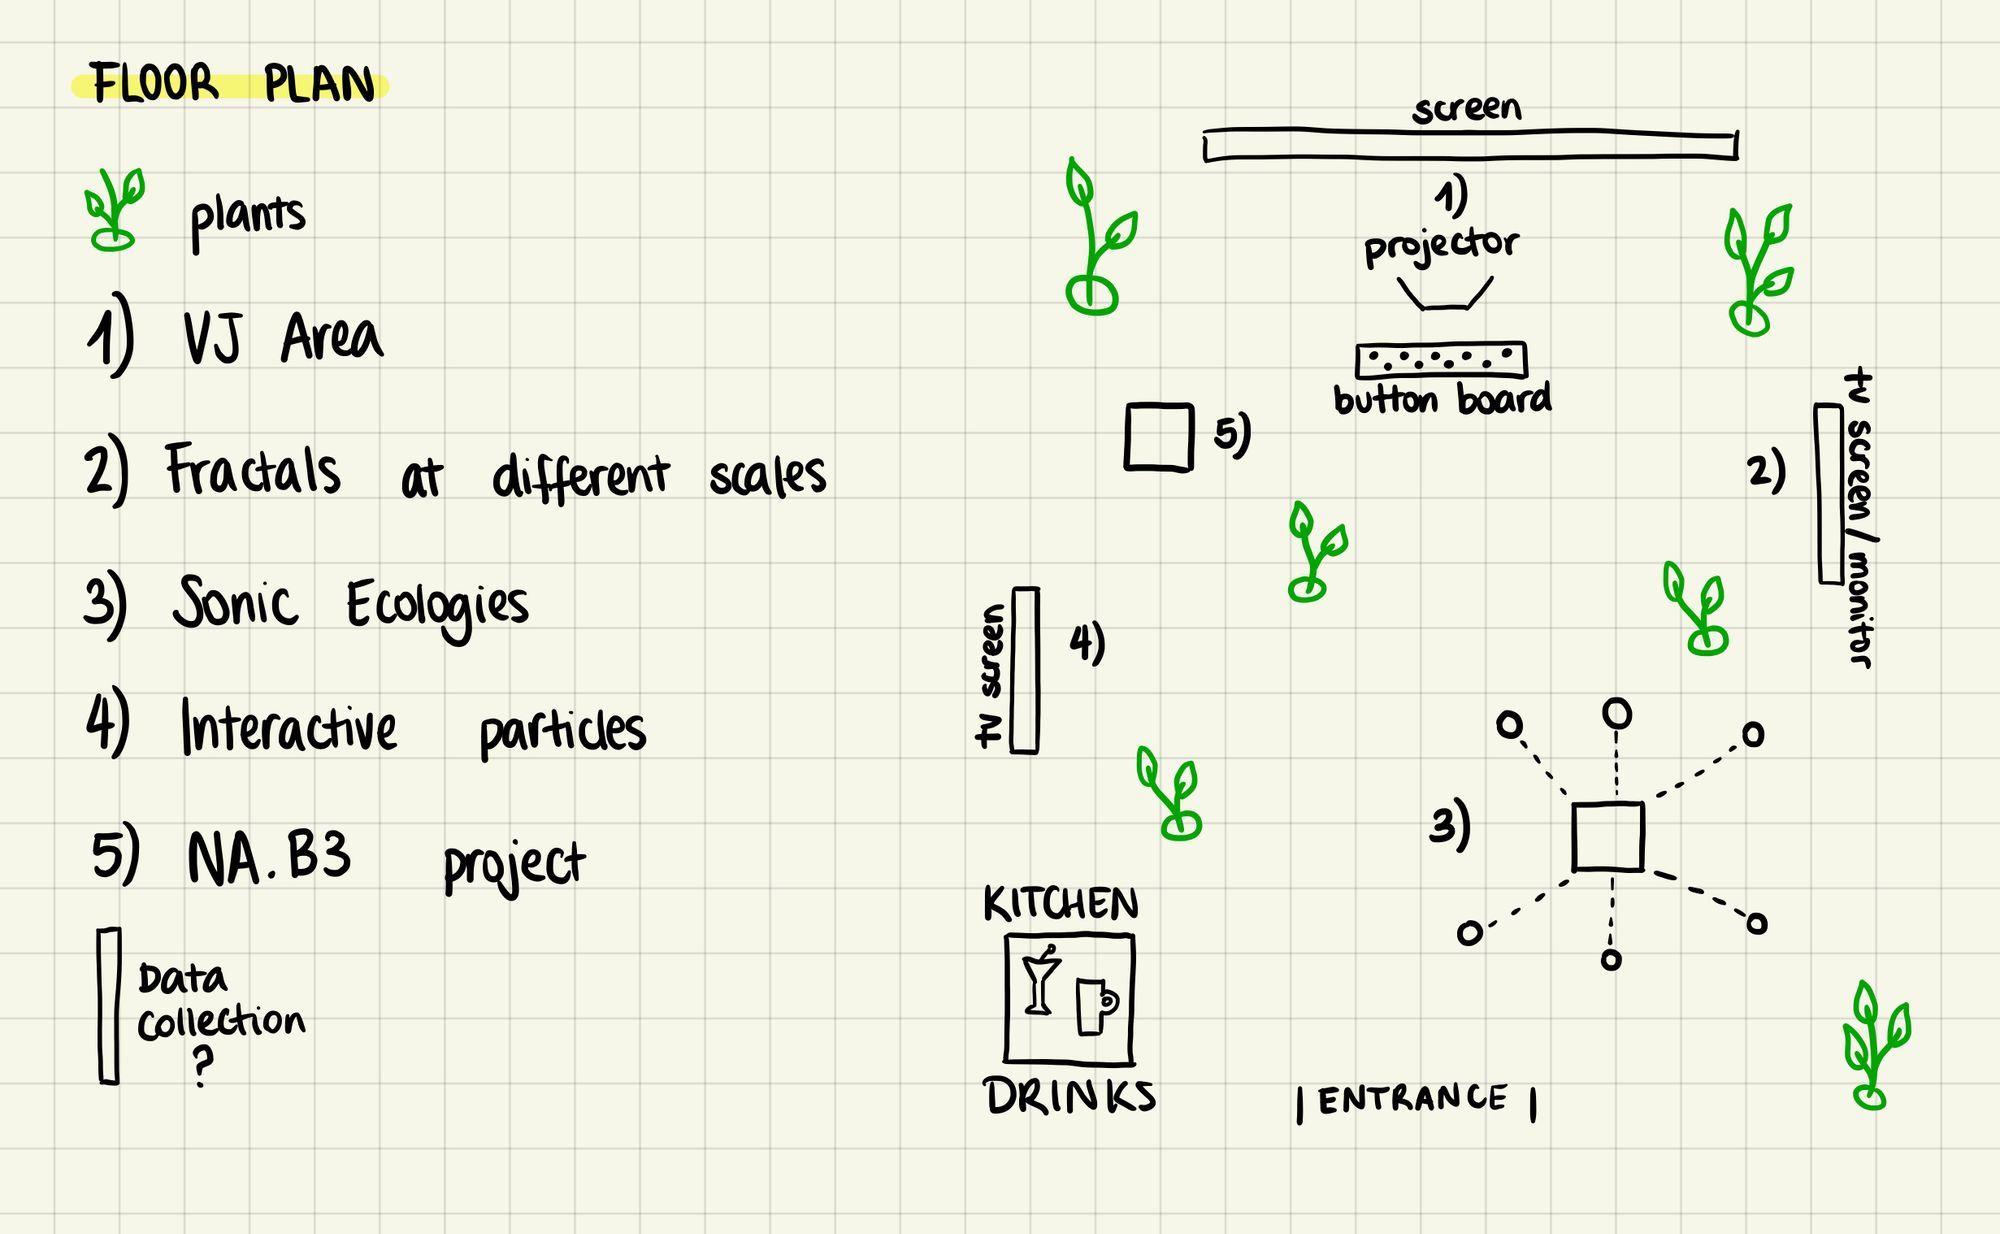 FLOOR PLAN
plants
1) VJ Area
2) Fractals at different scales
3) Sonic Ecologies
4) Interactive particles
5) NA.B3 project
Data
collection
?
screen
1)
projector
button board
5)
2)
tv screen/monitor
tv screen
4)
3)
KITCHEN
DRINKS
| ENTRANCE |